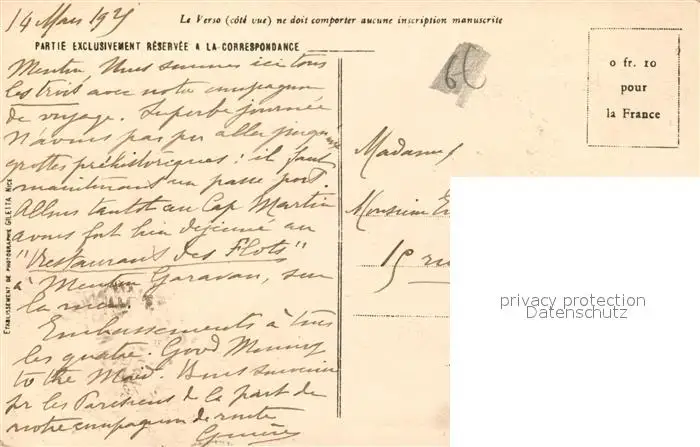 14 Mars 192
Le Verso (côté vue) ne doit comporter aucune inscription manuscrite
PARTIE EXCLUSIVEMENT RÉSERVÉE A LA CORRESPONDANCE
0 fr. 10
pour
la France
ETABLISSEMENT DE PHOTOGRAPHIE GILETTA NICE
Menton, Nous sommes ici tous
les trois avec notre compagnon
de voyage. Superbe journée
N'avons pas pu aller jusqu'aux
grottes préhistoriques : il faut
maintenant un passe port.
Allons tantôt au Cap Martin
avons fort bien déjeuné au
"Restaurant des Flots"
à Menton Garavan, sur
la mer.
Embrassements à tous
les quatre. Good Morning
to the Maid. Bons souvenirs
pr les Parisiens de la part de
notre compagnon de route
Madame
Monsieur
15 ru
privacy protection
Datenschutz